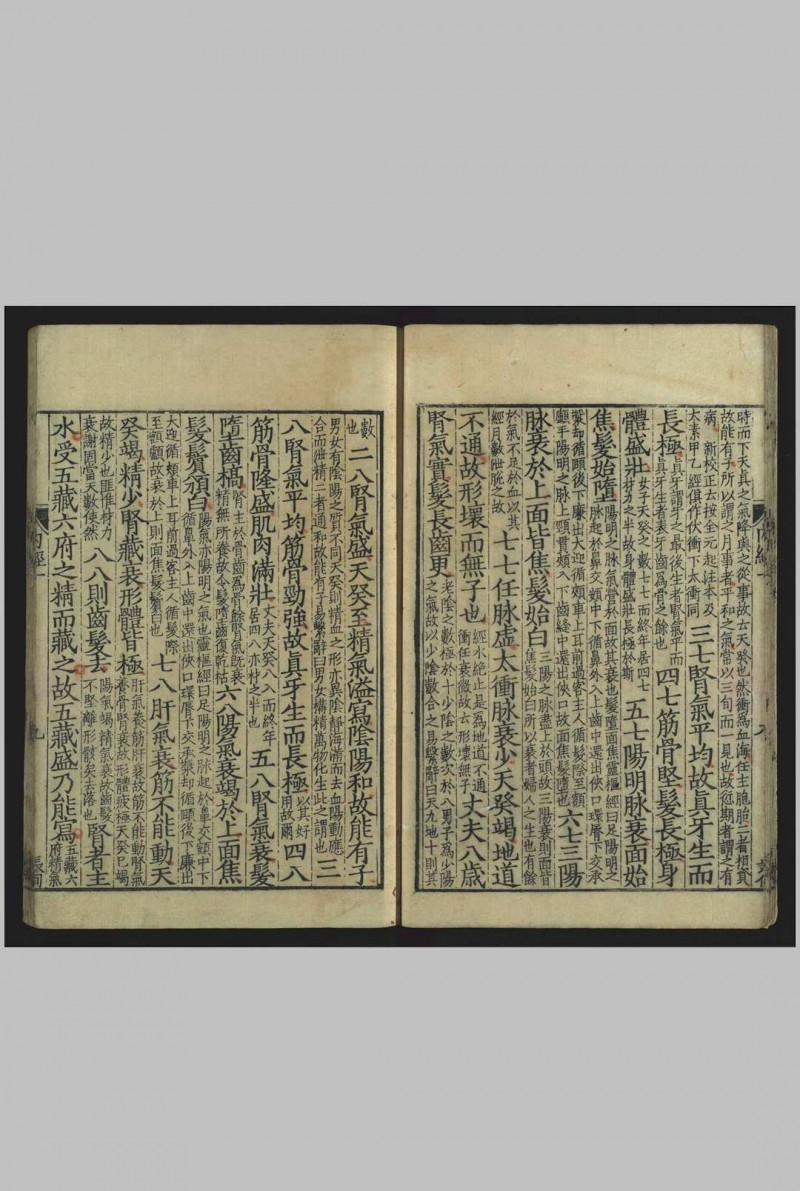 時而下天真之氣降與之從事故云天癸也然衝為血海任主胞胎二者相資
故能有子所以謂之月事者平和之氣常以三旬而一見也故愆期者謂之有
病 新校正云按全元起注本及
太素甲乙經俱作伏衝下太衝同
三七腎氣平均故真牙生而
長極
真牙謂牙之最後生者腎氣平而
真牙生者表牙齒為骨之餘也
四七筋骨堅髮長極身
體盛壯
女子天癸之數七七而終年居四七
材力之半故身體盛壯長極於斯
五七陽明脉衰面始
焦髮始墮
陽明之脉氣營於面故其衰也髮墮面焦靈樞經曰足陽明之
脉起於鼻交頞中下循鼻外入上齒中還出俠口環脣下交承
漿却循頤後下廉出大迎循頰車上耳前過客主人循髮際至額
顱手陽明之脉上頸貫頰入下齒縫中還出俠口故面焦髮墮也
六七三陽
脉衰於上面皆焦髮始白
三陽之脉盡上於頭故三陽衰則面皆
焦髮始白所以衰者婦人之生也有餘
於氣不足於血以其
經月數泄脫之故
七七任脉虛太衝脉衰少天癸竭地道
不通故形壞而無子也
經水絶止是為地道不通
衝任衰微故云形壞無子
丈夫八歲
腎氣實髮長齒更
老陰之數極於十少陰之數次於八男子為少陽
之氣故以少陰數合之易繫辭曰天九地十則其
數
也
二八腎氣盛天癸至精氣溢寫陰陽和故能有子
男女有陰陽之質不同天癸則精血之形亦異陰靜海滿而去血陽動應
合而泄精二者通和故能有子易繫辭曰男女構精萬物化生此之謂也
三
八腎氣平均筋骨勁強故真牙生而長極
以其好
用故爾
四八
筋骨隆盛肌肉滿壯
丈夫天癸八八而終年
居四八亦材之半也
五八腎氣衰髮
墮齒槁
腎主於骨齒為骨餘腎氣既衰
精無所養故令髮墮齒復乾枯
六八陽氣衰竭於上面焦
髮鬢頒白
陽氣亦陽明之氣也靈樞經曰足陽明之脉起於鼻交頞中下
循鼻外入上齒中還出俠口環脣下交承漿却循頤後下廉出
大迎循頰車上耳前過客主人循髮際
至額顱故衰於上則面焦髮鬢白也
七八肝氣衰筋不能動天
癸竭精少腎藏衰形體皆極
肝氣養筋肝衰故筋不能動腎氣
養骨腎衰故形體疲極天癸已竭
故精少也匪惟材力
衰謝固當天數使然
八八則齒髮去
陽氣竭精氣衰故齒髮
不堅離形骸矣去落也
腎者主
水受五藏六府之精而藏之故五藏盛乃能寫
五藏六
府精氣
内經一
九